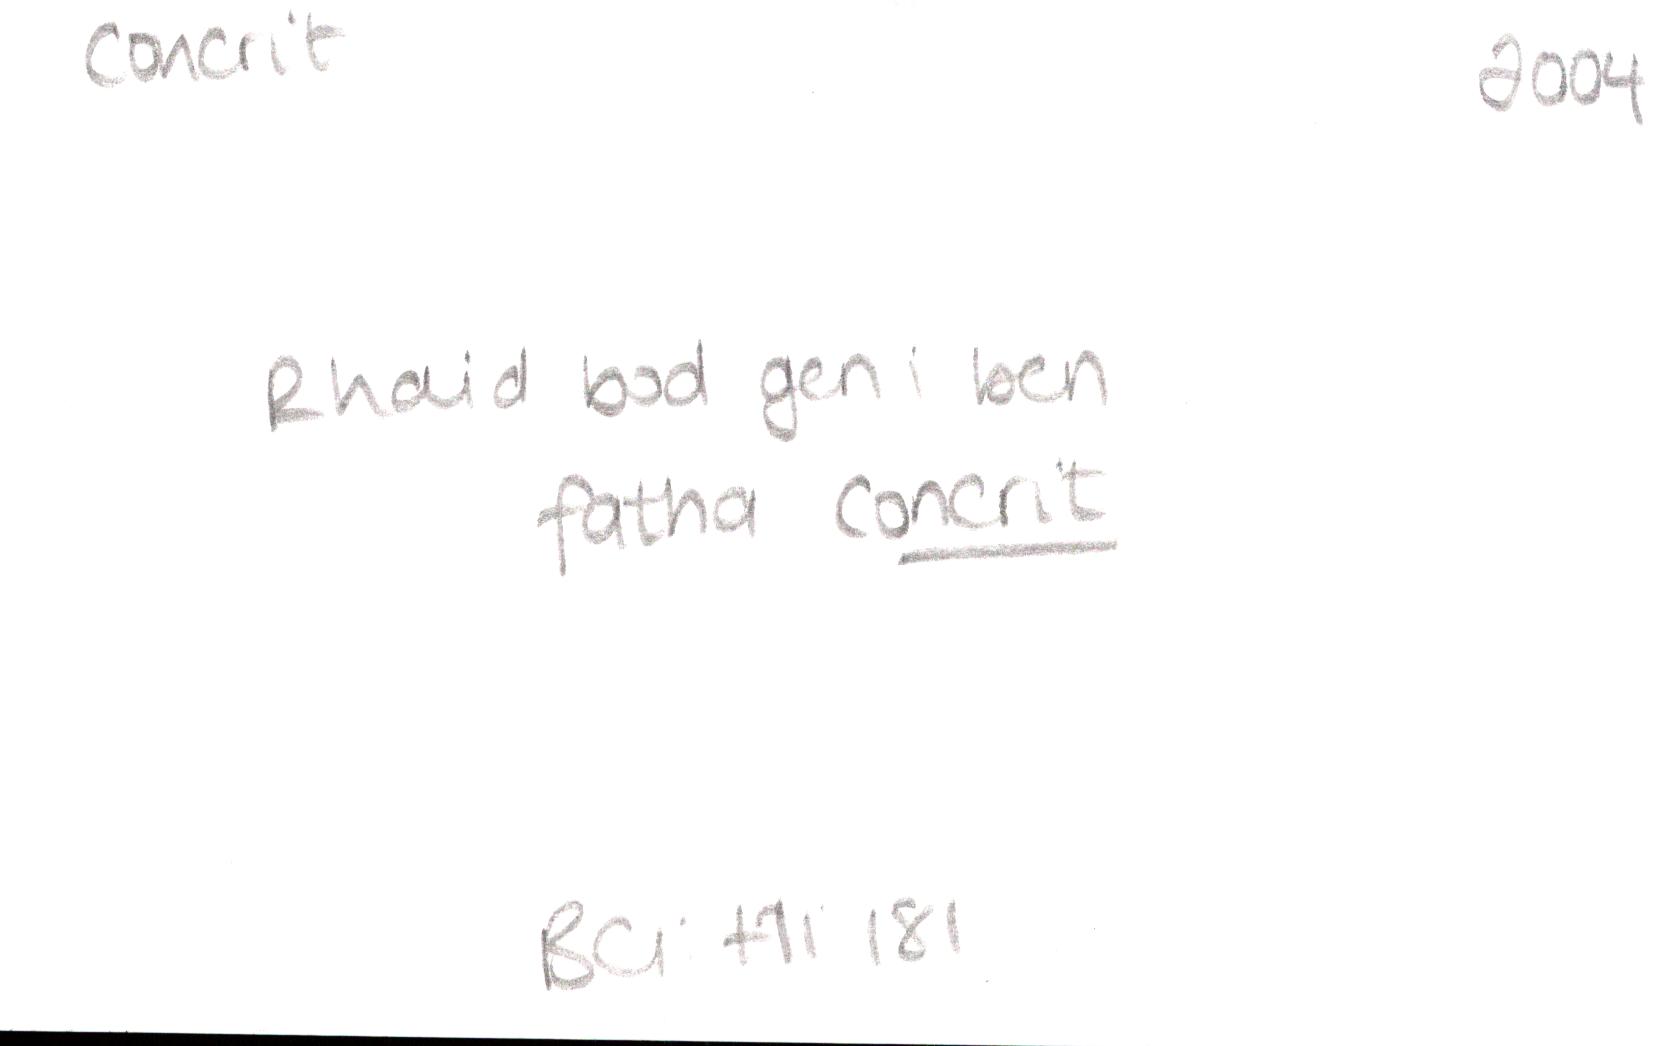 Concrit 2004
Rhaid bod gen i ben
fatha concrit
181